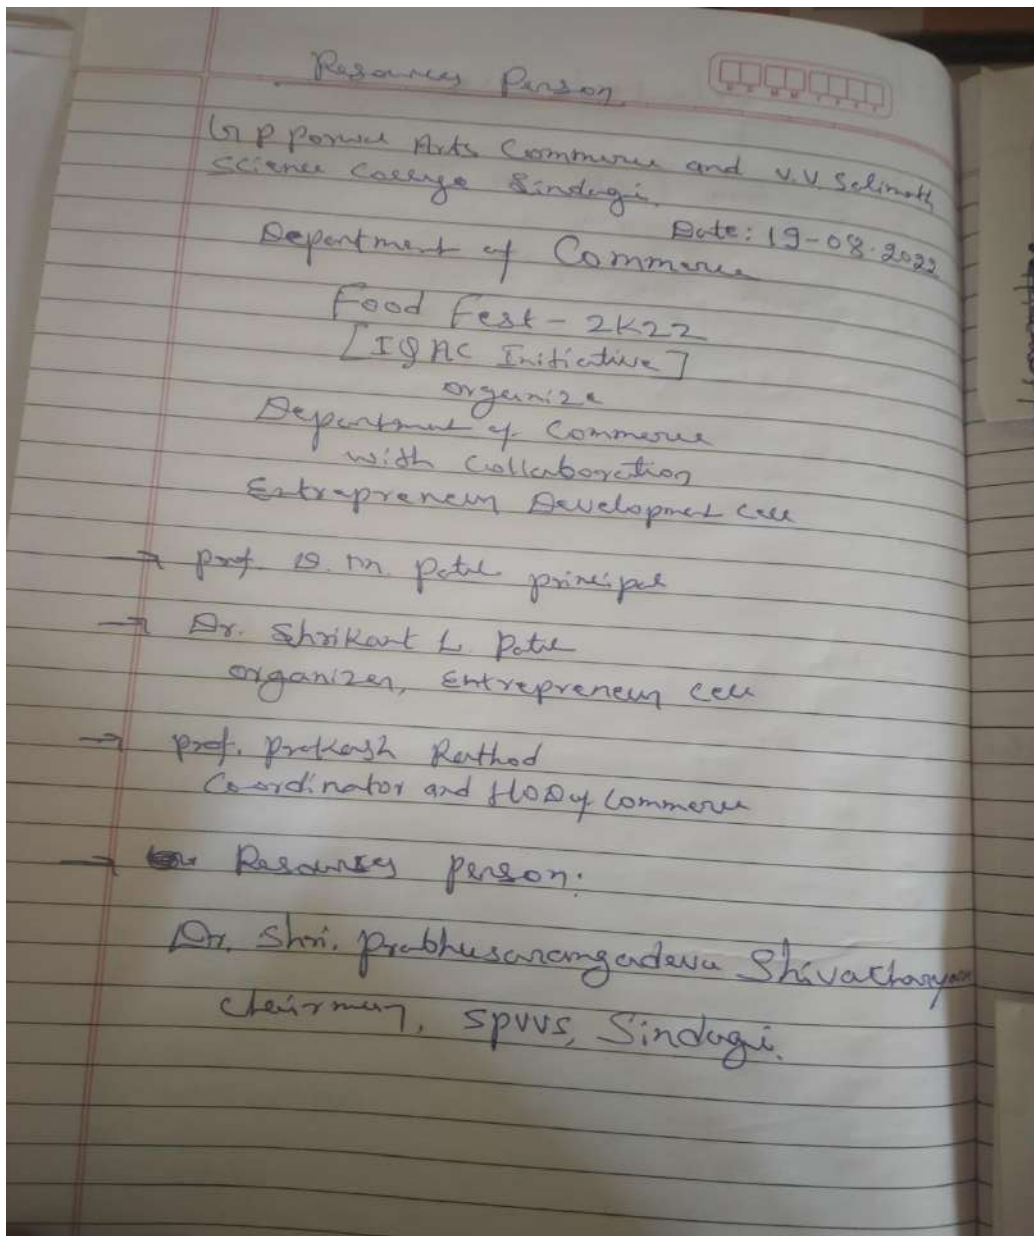 Resources Person
D D M M Y Y Y Y
G P Porwal Arts Commerce and V.V. Salimath
Science College Sindagi.
Date: 19-08-2022
Department of Commerce
Food Fest - 2K22
[IQAC Initiative]
organize
Department of Commerce
with Collaboration
Entrepreneur Development cell
→ prof. D. M. Patil principal
→ Dr. Shrikant L. Patil
organizer, Entrepreneur cell
→ prof. Prakash Rathod
Coordinator and HOD of Commerce
→ Resources person:
Dr. Shri. Prabhusarangadeva Shivacharya
Chairman, SPVVS, Sindagi.